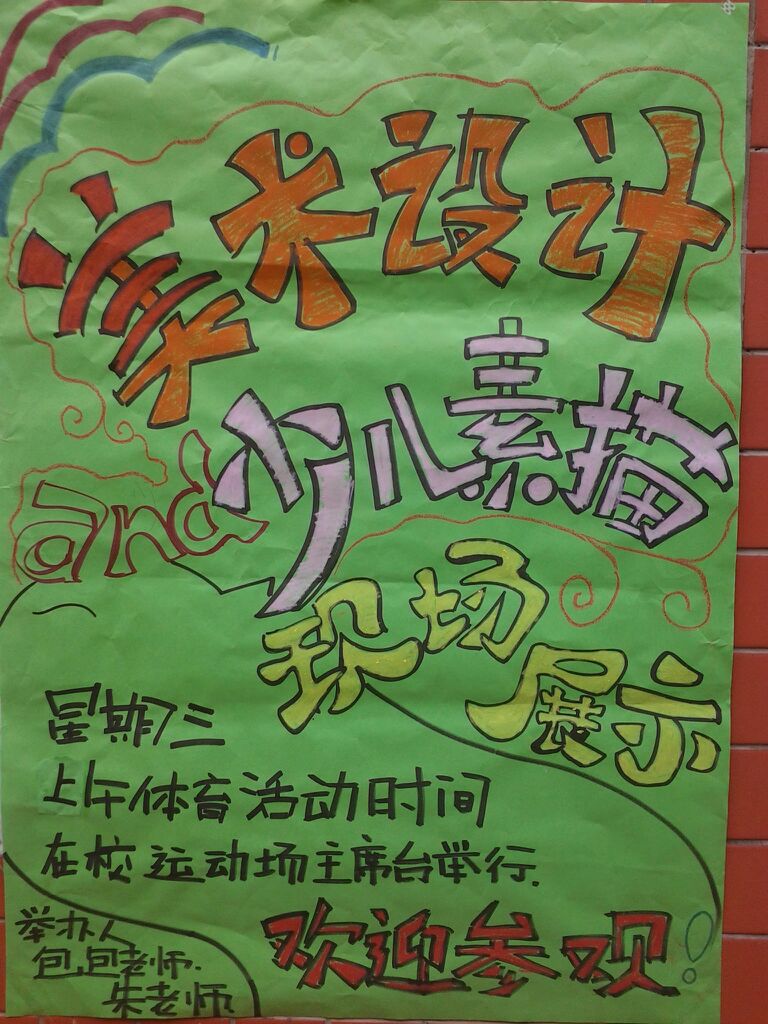 美术设计
and少儿素描
现场展示
星期三
上午体育活动时间
在校运动场主席台举行.
欢迎参观!
举办人
包包老师.
朱老师